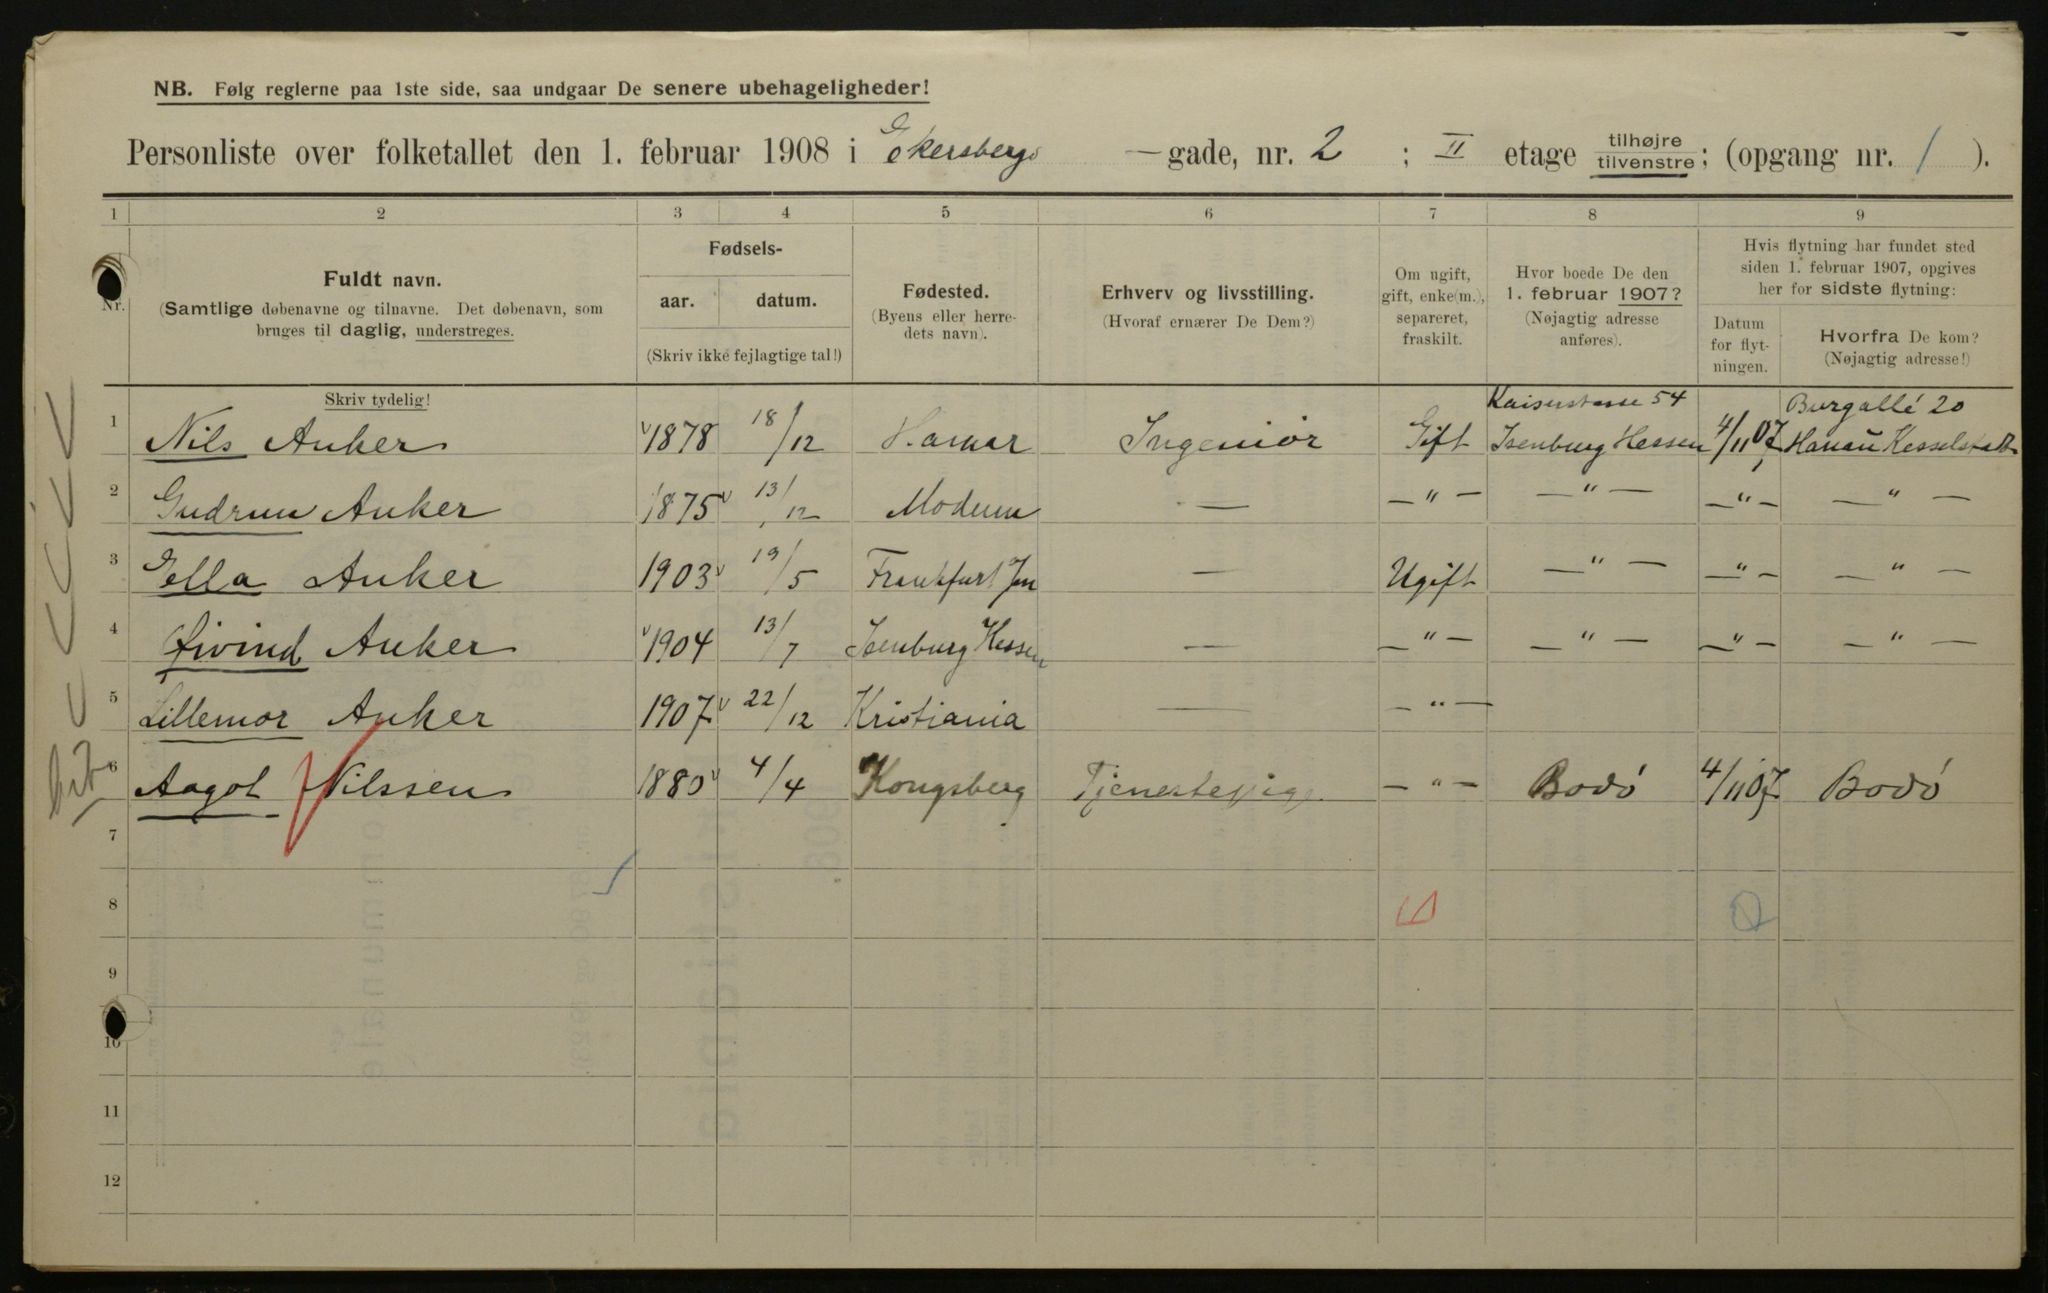 NB. Følg reglerne paa 1ste side, saa undgaar De senere ubehageligheder!
Personliste over folketallet den 1. februar 1908 i Ekersbergs —gade, nr. 2 ; II etage tilhøjre tilvenstre; (opgang nr. 1 ).
1 2 3 4 5 6 7 8 9
Nr.
Fuldt navn.
(Samtlige døbenavne og tilnavne. Det døbenavn, som
bruges til daglig, understreges.
Skriv tydelig!
Fødsels-
aar. datum.
(Skriv ikke fejlagtige tal!)
Fødested.
(Byens eller herre-
dets navn).
Erhverv og livsstilling.
(Hvoraf ernærer De Dem?)
Om ugift,
gift, enke(m.),
separeret,
fraskilt.
Hvor boede De den
1. februar 1907?
(Nøjagtig adresse
anføres).
Hvis flytning har fundet sted
siden 1. februar 1907, opgives
her for sidste flytning:
Datum
for flyt-
ningen.
Hvorfra De kom?
(Nøjagtig adresse!)
Kaiserstasse 54 Burgallé 20
1 Nils Anker 1878 18/12 Hamar Ingeniör Gift Isenburg Hessen 4/11 07 Hanau Kesselstadt
2 Gudrun Anker 1875 13/12 Modum — — " — — " — — " — — " —
3 Ella Anker 1903 19/5 Frankfurt — Ugift — " — — " — — " —
4 Øivind Anker 1904 13/7 Isenburg Hessen — — " — — " — — " — — " —
5 Lillemor Anker 1907 22/12 Kristiania — — " —
6 Aagot Nilssen 1880 4/4 Kongsberg Tjenestepige — " — Bodö 4/11 07 Bodö
7
8
9
10
11
12